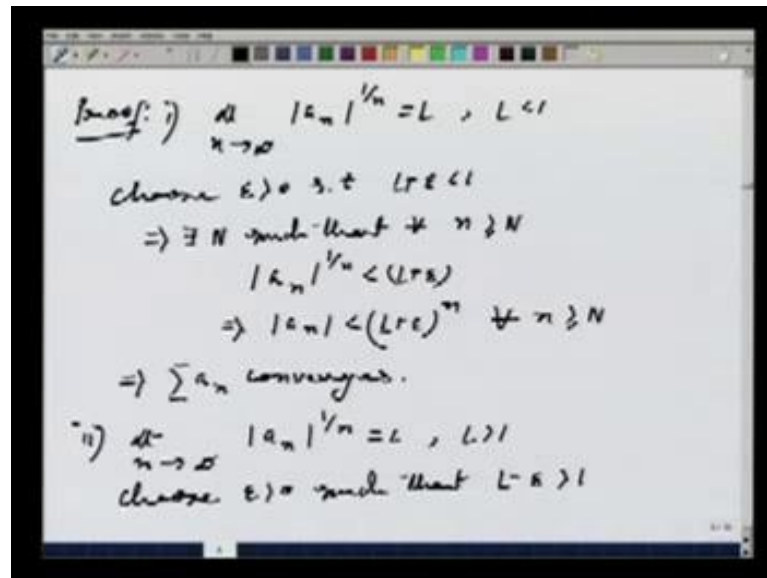 Proof: i) lt |a_n|^{1/n} = L , L < 1
n→∞
choose ε > 0 s.t L+ε < 1
⇒ ∃ N such that ∀ n ≥ N
|a_n|^{1/n} < (L+ε)
⇒ |a_n| < (L+ε)^n ∀ n ≥ N
⇒ ∑ a_n converges.
ii) lt |a_n|^{1/n} = L , L > 1
n→∞
choose ε > 0 such that L-ε > 1